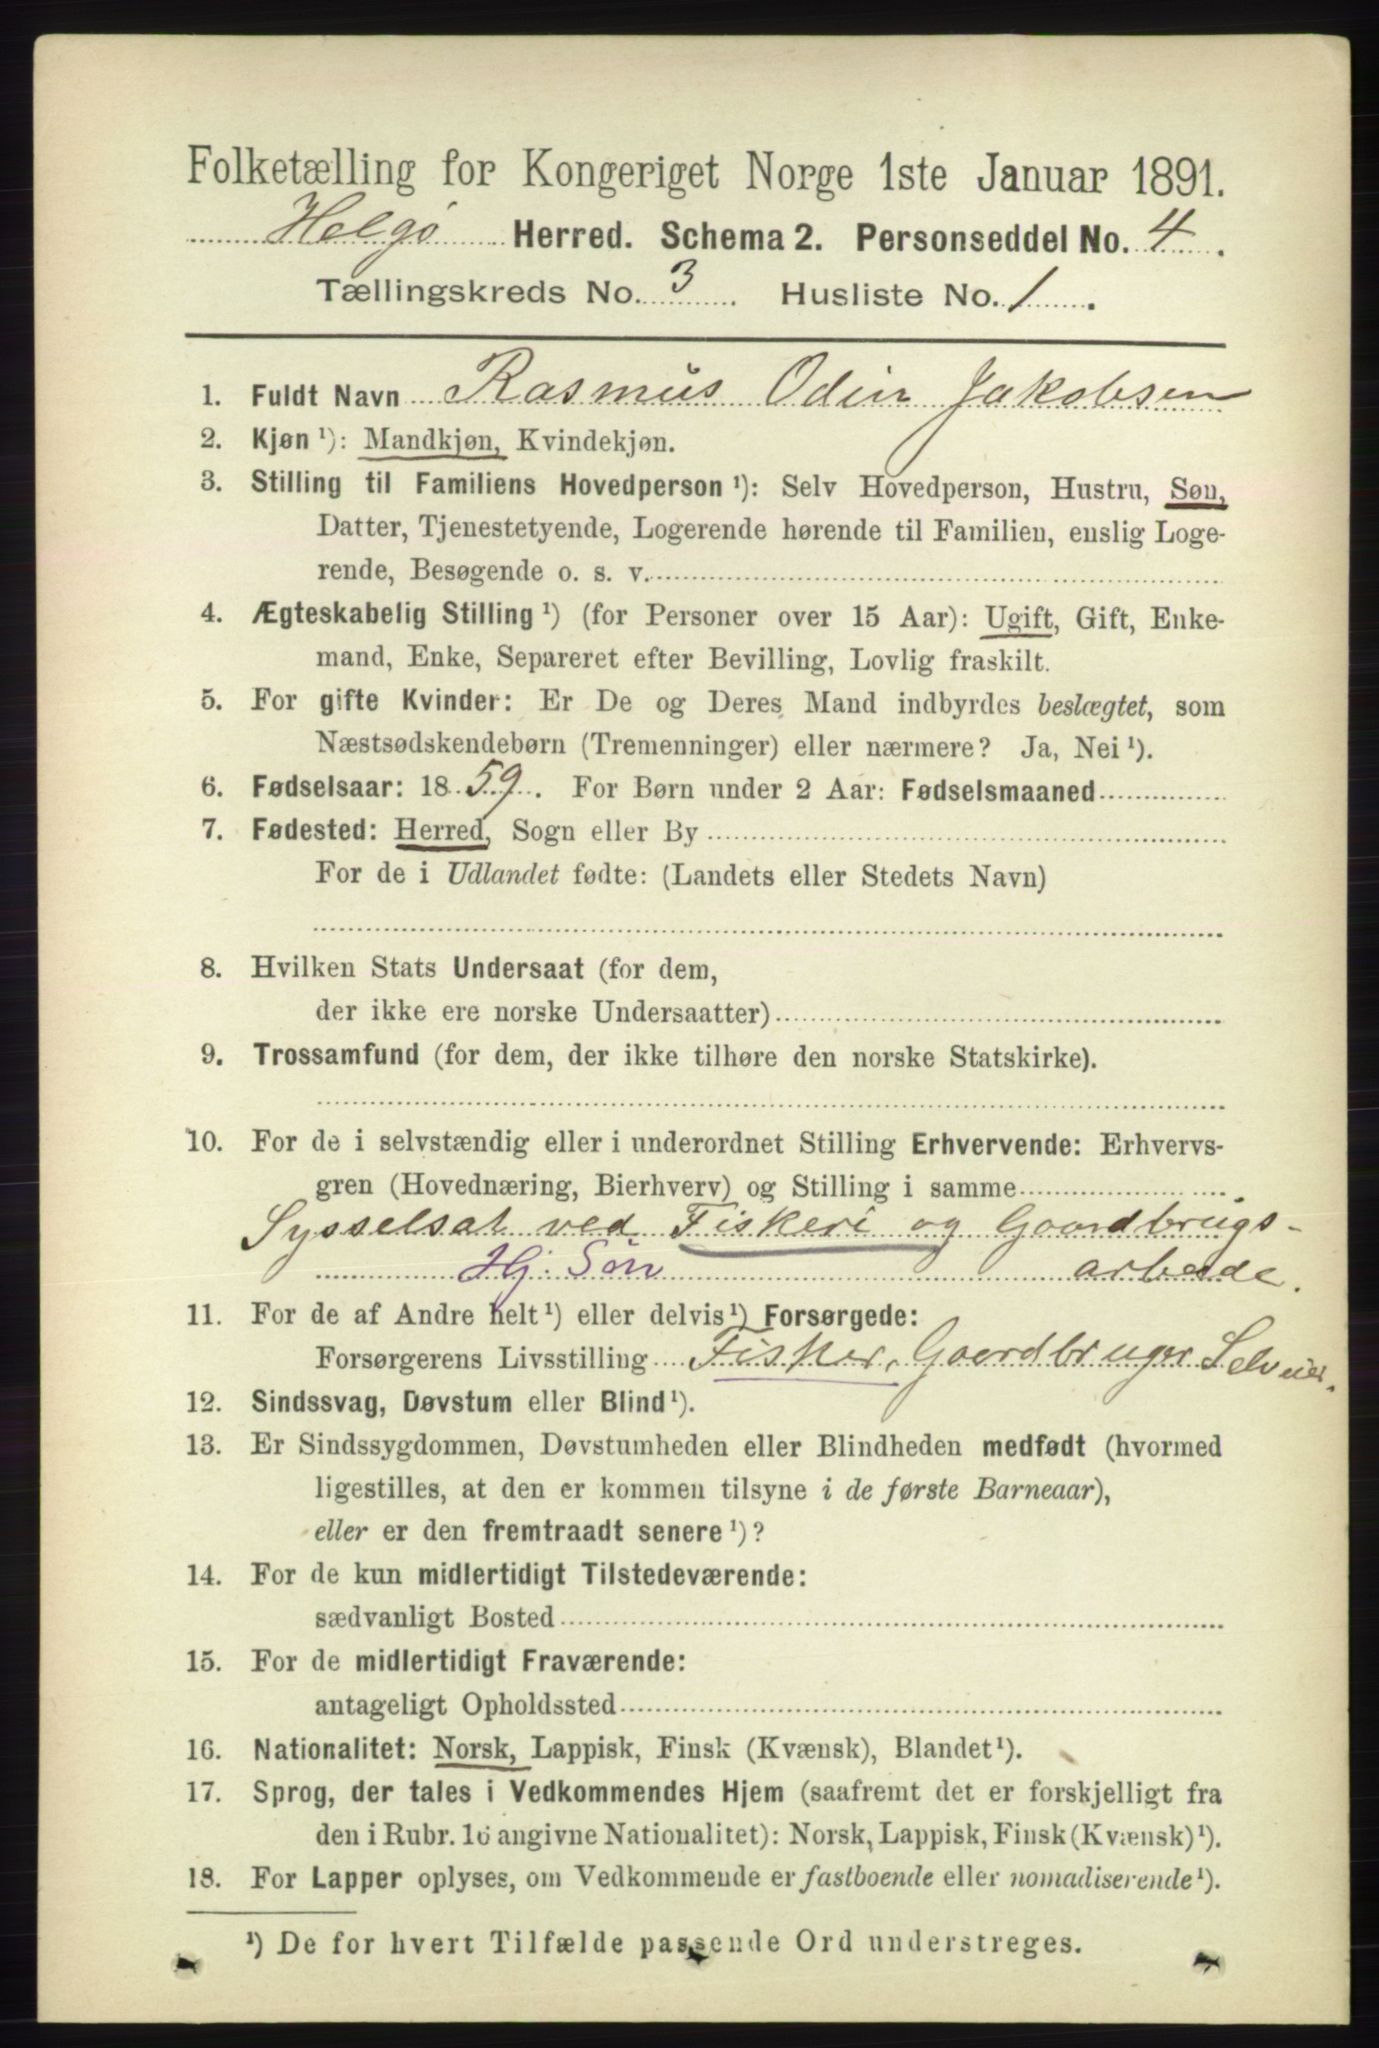 Folketælling for Kongeriget Norge 1ste Januar 1891.
Helgø Herred. Schema 2. Personseddel No. 4.
Tællingskreds No. 3 Husliste No. 1.
1. Fuldt Navn Rasmus Odin Jakobsen
2. Kjøn ¹): Mandkjøn, Kvindekjøn.
3. Stilling til Familiens Hovedperson ¹): Selv Hovedperson, Hustru, Søn,
Datter, Tjenestetyende, Logerende hørende til Familien, enslig Loge-
rende, Besøgende o. s. v.
4. Ægteskabelig Stilling ¹) (for Personer over 15 Aar): Ugift, Gift, Enke-
mand, Enke, Separeret efter Bevilling, Lovlig fraskilt.
5. For gifte Kvinder: Er De og Deres Mand indbyrdes beslægtet, som
Næstsødskendebørn (Tremenninger) eller nærmere? Ja, Nei ¹).
6. Fødselsaar: 1859. For Børn under 2 Aar: Fødselsmaaned
7. Fødested: Herred, Sogn eller By
For de i Udlandet fødte: (Landets eller Stedets Navn)
8. Hvilken Stats Undersaat (for dem,
der ikke ere norske Undersaatter)
9. Trossamfund (for dem, der ikke tilhøre den norske Statskirke).
10. For de i selvstændig eller i underordnet Stilling Erhvervende: Erhvervs-
gren (Hovednæring, Bierhverv) og Stilling i samme
Sysselsat ved Fiskeri og Gaardbrugs-
Hj. Søn arbeide.
11. For de af Andre helt ¹) eller delvis ¹) Forsørgede:
Forsørgerens Livsstilling Fisker, Gaardbruger Selveier.
12. Sindssvag, Døvstum eller Blind ¹).
13. Er Sindssygdommen, Døvstumheden eller Blindheden medfødt (hvormed
ligestilles, at den er kommen tilsyne i de første Barneaar),
eller er den fremtraadt senere ¹)?
14. For de kun midlertidigt Tilstedeværende:
sædvanligt Bosted
15. For de midlertidigt Fraværende:
antageligt Opholdssted
16. Nationalitet: Norsk, Lappisk, Finsk (Kvænsk), Blandet ¹).
17. Sprog, der tales i Vedkommendes Hjem (saafremt det er forskjelligt fra
den i Rubr. 16 angivne Nationalitet): Norsk, Lappisk, Finsk (Kvænsk) ¹).
18. For Lapper oplyses, om Vedkommende er fastboende eller nomadiserende ¹).
¹) De for hvert Tilfælde passende Ord understreges.